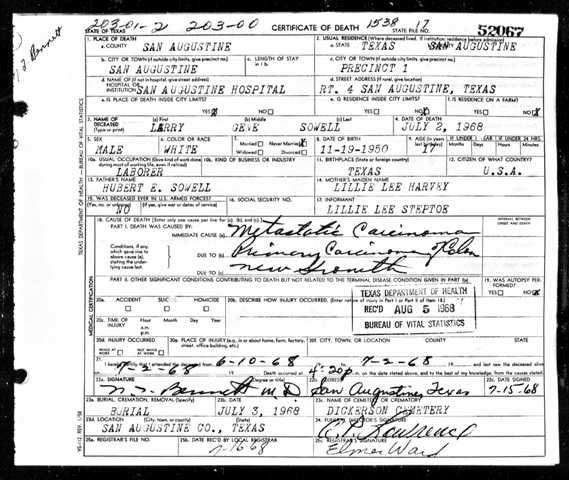 203-01-2 203-00 CERTIFICATE OF DEATH 1538 17
STATE OF TEXAS STATE FILE NO. 52067
1. PLACE OF DEATH
a. COUNTY SAN AUGUSTINE
2. USUAL RESIDENCE (Where deceased lived. If institution: residence before admission)
a. STATE TEXAS b. COUNTY SAN AUGUSTINE
b. CITY OR TOWN (If outside city limits, give precinct no.) c. LENGTH OF STAY in 1 b
SAN AUGUSTINE
c. CITY OR TOWN (If outside city limits, give precinct no.)
PRECINCT 1
d. NAME OF (If not in hospital, give street address) HOSPITAL OR INSTITUTION
SAN AUGUSTINE HOSPITAL
d. STREET ADDRESS (If rural, give location)
RT. 4 SAN AUGUSTINE, TEXAS
e. IS PLACE OF DEATH INSIDE CITY LIMITS?
YES NO
e. IS RESIDENCE INSIDE CITY LIMITS? f. IS RESIDENCE ON A FARM?
YES NO YES NO
3. NAME OF DECEASED (Type or print) (a) First (b) Middle (c) Last
LARRY GENE SOWELL
4. DATE OF DEATH
JULY 2, 1968
5. SEX 6. COLOR OR RACE 7. Married Never Married
MALE WHITE Widowed Divorced
8. DATE OF BIRTH 9. AGE (In years last birthday) IF UNDER 1 YEAR IF UNDER 24 HRS.
11-19-1950 17 Months Days Hours Minutes
10a. USUAL OCCUPATION (Give kind of work done during most of working life, even if retired) 10b. KIND OF BUSINESS OR INDUSTRY
LABORER
11. BIRTHPLACE (State or foreign country) 12. CITIZEN OF WHAT COUNTRY?
TEXAS U.S.A.
13. FATHER'S NAME 14. MOTHER'S MAIDEN NAME
HUBERT E. SOWELL LILLIE LEE HARVEY
15. WAS DECEASED EVER IN U.S. ARMED FORCES? 16. SOCIAL SECURITY NO. 17. INFORMANT
(Yes, no, or unknown) (If yes, give war or dates of service)
NO LILLIE LEE STEPTOE
18. CAUSE OF DEATH (Enter only one cause per line for (a), (b), and (c).) INTERVAL BETWEEN ONSET AND DEATH
PART I. DEATH WAS CAUSED BY:
IMMEDIATE CAUSE (a) Metastatic Carcinoma
Conditions, if any, which gave rise to above cause (a), stating the underlying cause last.
DUE TO (b) Primary Carcinoma of Colon
DUE TO (c) new Growth
PART II. OTHER SIGNIFICANT CONDITIONS CONTRIBUTING TO DEATH BUT NOT RELATED TO THE TERMINAL DISEASE CONDITION GIVEN IN PART I(a)
19. WAS AUTOPSY PERFORMED?
YES NO
20a. ACCIDENT SUICIDE HOMICIDE 20b. DESCRIBE HOW INJURY OCCURRED. (Enter nature of injury in Part I or Part II of item 18.)
TEXAS DEPARTMENT OF HEALTH
REC'D AUG 5 1968
BUREAU OF VITAL STATISTICS
20c. TIME OF INJURY Hour Month Day Year
a.m.
p.m.
20d. INJURY OCCURRED 20e. PLACE OF INJURY (e.g., in or about home, farm, factory, street, office building, etc.) 20f. CITY, TOWN, OR LOCATION COUNTY STATE
WHILE AT WORK NOT WHILE AT WORK
21. I hereby certify that I attended the deceased from 6-10-68 to 7-2-68 and last saw the deceased alive
7-2-68 Death occurred at 4:20p m. on the date stated above, and to the best of my knowledge, from the causes stated.
22a. SIGNATURE (Degree or title) 22b. ADDRESS 22c. DATE SIGNED
Bennett M.D. San Augustine, Texas 7-15-68
23a. BURIAL, CREMATION, REMOVAL (Specify) 23b. DATE 23c. NAME OF CEMETERY OR CREMATORY
BURIAL JULY 3, 1968 DICKERSON CEMETERY
23d. LOCATION (City, town, or county) (State) 24. FUNERAL DIRECTOR'S SIGNATURE
SAN AUGUSTINE CO., TEXAS Lawrence
25a. REGISTRAR'S FILE NO. 25b. DATE REC'D BY LOCAL REGISTRAR 25c. REGISTRAR'S SIGNATURE
7-16-68 Elmer Ward
TEXAS DEPARTMENT OF HEALTH — BUREAU OF VITAL STATISTICS
MEDICAL CERTIFICATION
VS-112, REV. 1/58
Bennett